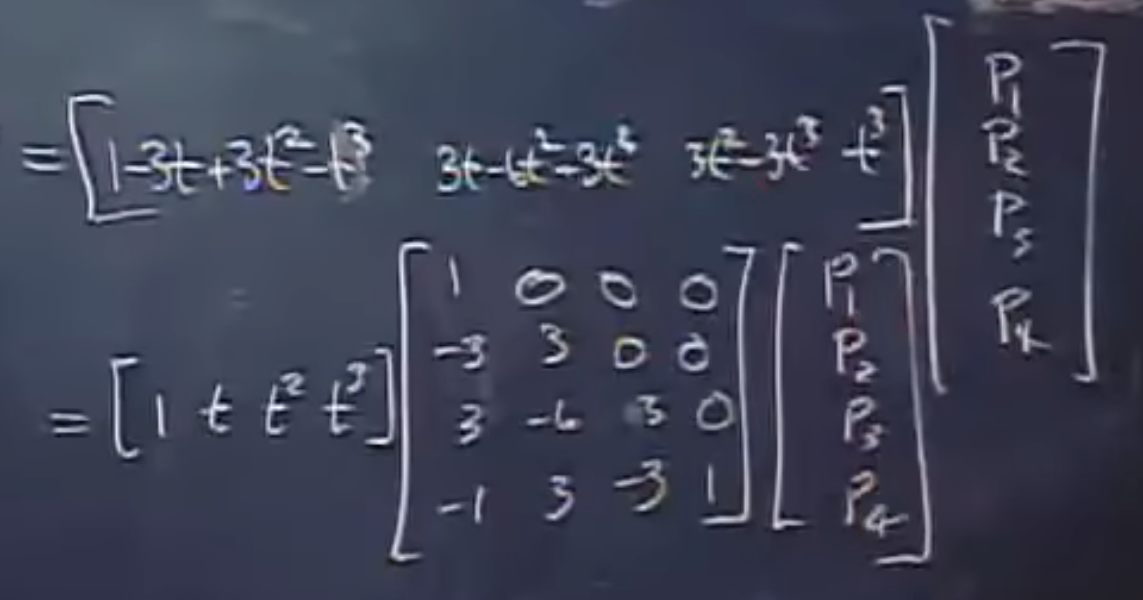 = [1-3t+3t²-t³ 3t-6t²-3t² 3t²-3t³ t³] [P₁
P₂
P₃
P₄]
= [1 t t² t³] [1 0 0 0
-3 3 0 0
3 -6 3 0
-1 3 -3 1] [P₁
P₂
P₃
P₄]